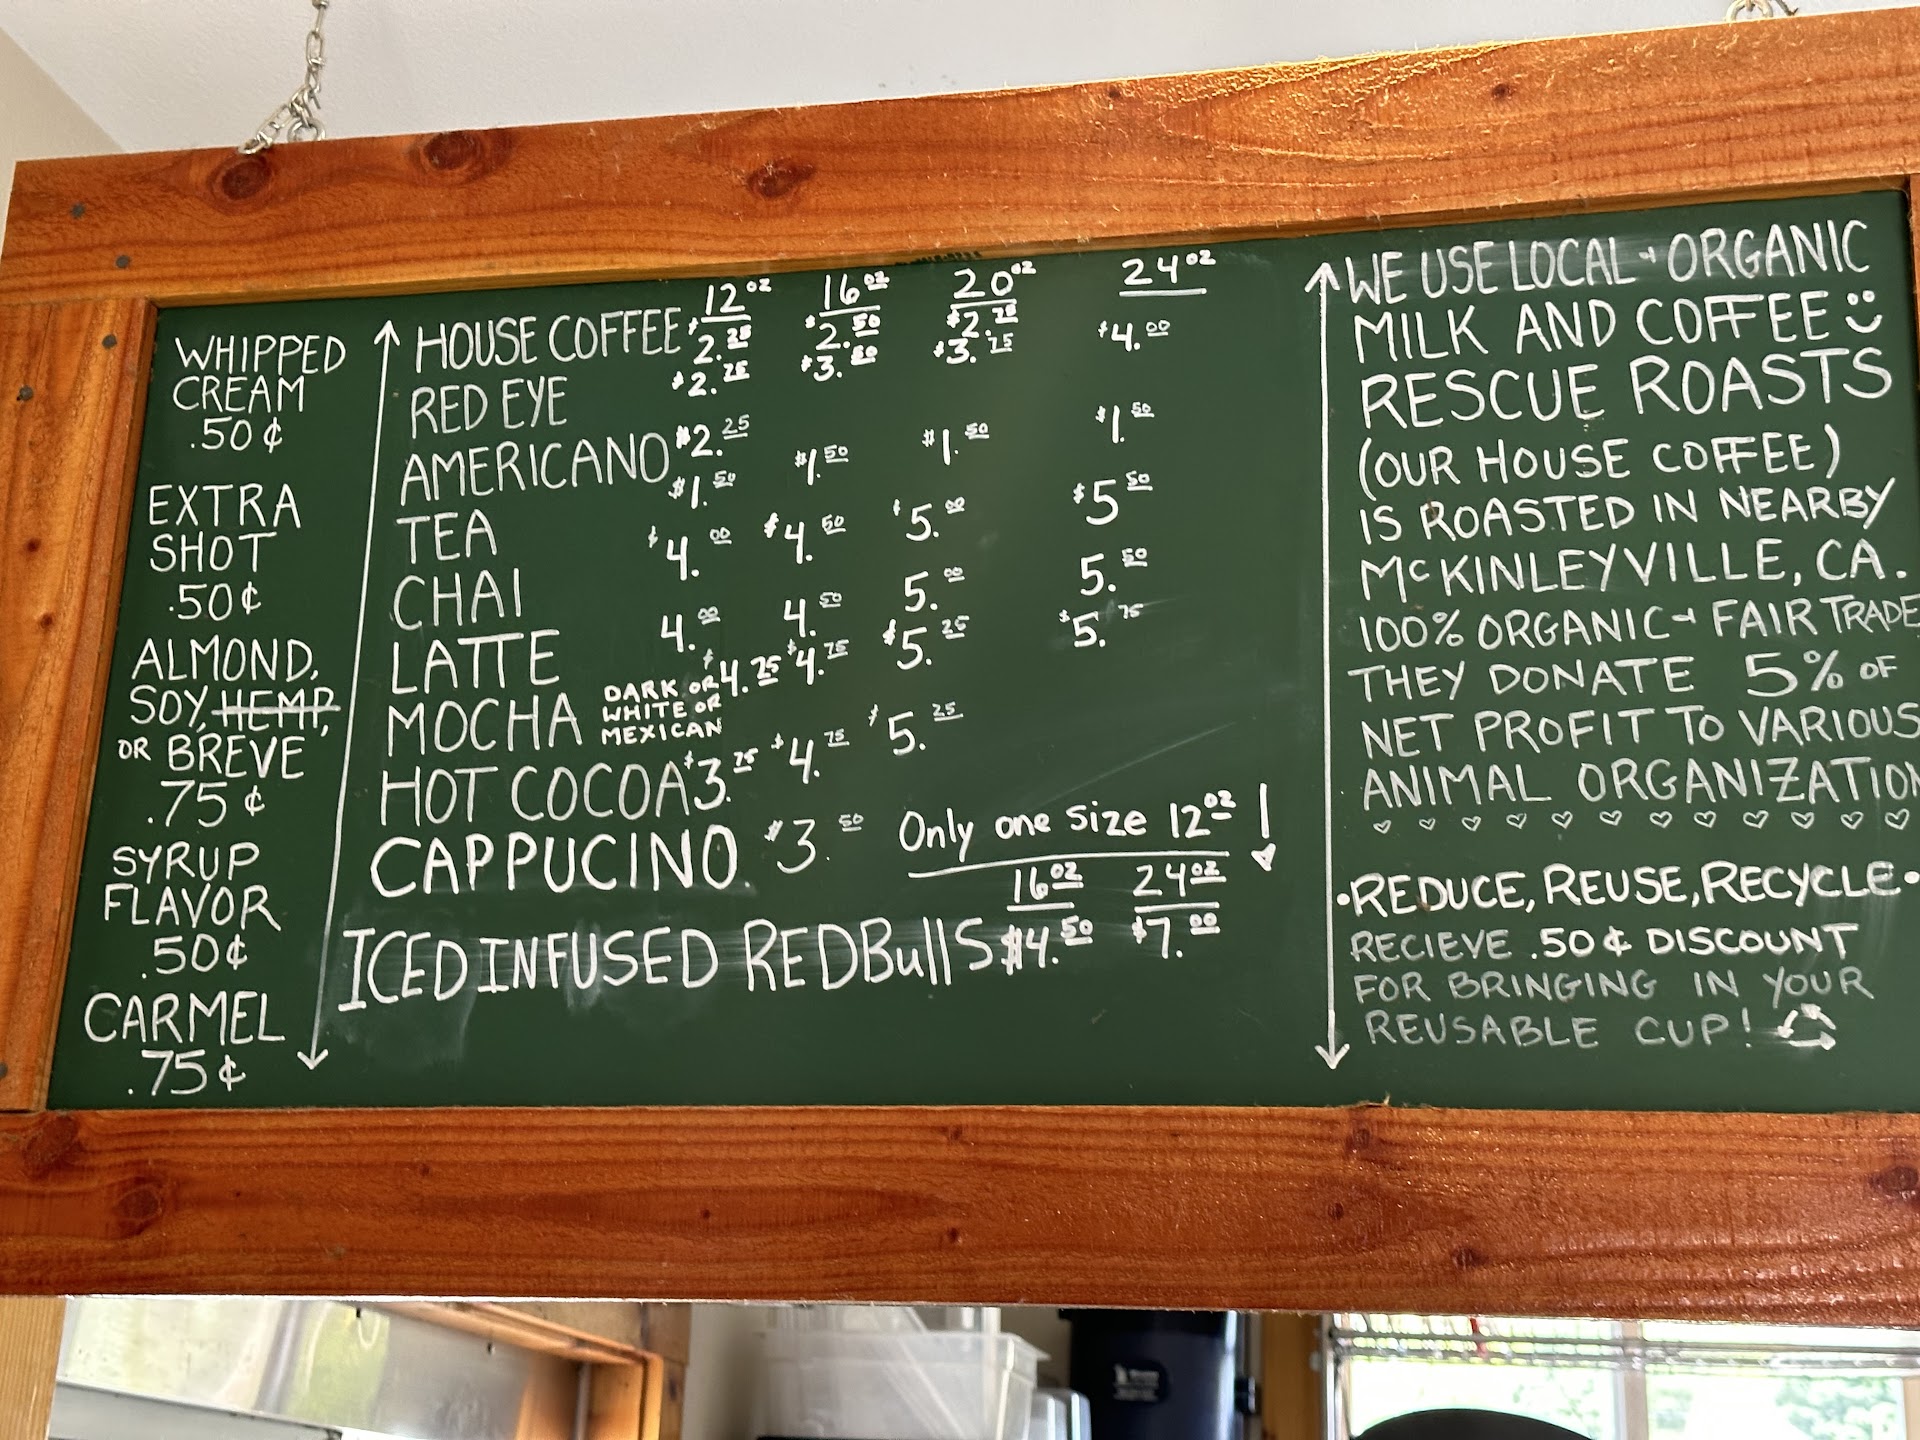 WHIPPED
CREAM
.50¢
EXTRA
SHOT
.50¢
ALMOND,
SOY, HEMP,
OR BREVE
.75¢
SYRUP
FLAVOR
.50¢
CARMEL
.75¢
12oz 16oz 20oz 24oz
HOUSE COFFEE $2.25 $2.50 $2.75
RED EYE $2.75 $3.50 $3.75 $4.00
AMERICANO $2.25
TEA $1.50 $1.50 $1.50 $1.50
CHAI $4.00 $4.50 $5.00 $5.50
LATTE 4.00 4.50 5.00 5.50
MOCHA DARK OR WHITE OR MEXICAN $4.25 $4.75 $5.25 $5.75
HOT COCOA $3.75 $4.75 $5.25
CAPPUCINO $3.50 Only one size 12oz!
16oz 24oz
ICED INFUSED REDBullS $4.50 $7.00
WE USE LOCAL + ORGANIC
MILK AND COFFEE
RESCUE ROASTS
(OUR HOUSE COFFEE)
IS ROASTED IN NEARBY
McKINLEYVILLE, CA.
100% ORGANIC + FAIR TRADE
THEY DONATE 5% OF
NET PROFIT TO VARIOUS
ANIMAL ORGANIZATION
•REDUCE, REUSE, RECYCLE•
RECIEVE .50¢ DISCOUNT
FOR BRINGING IN YOUR
REUSABLE CUP!